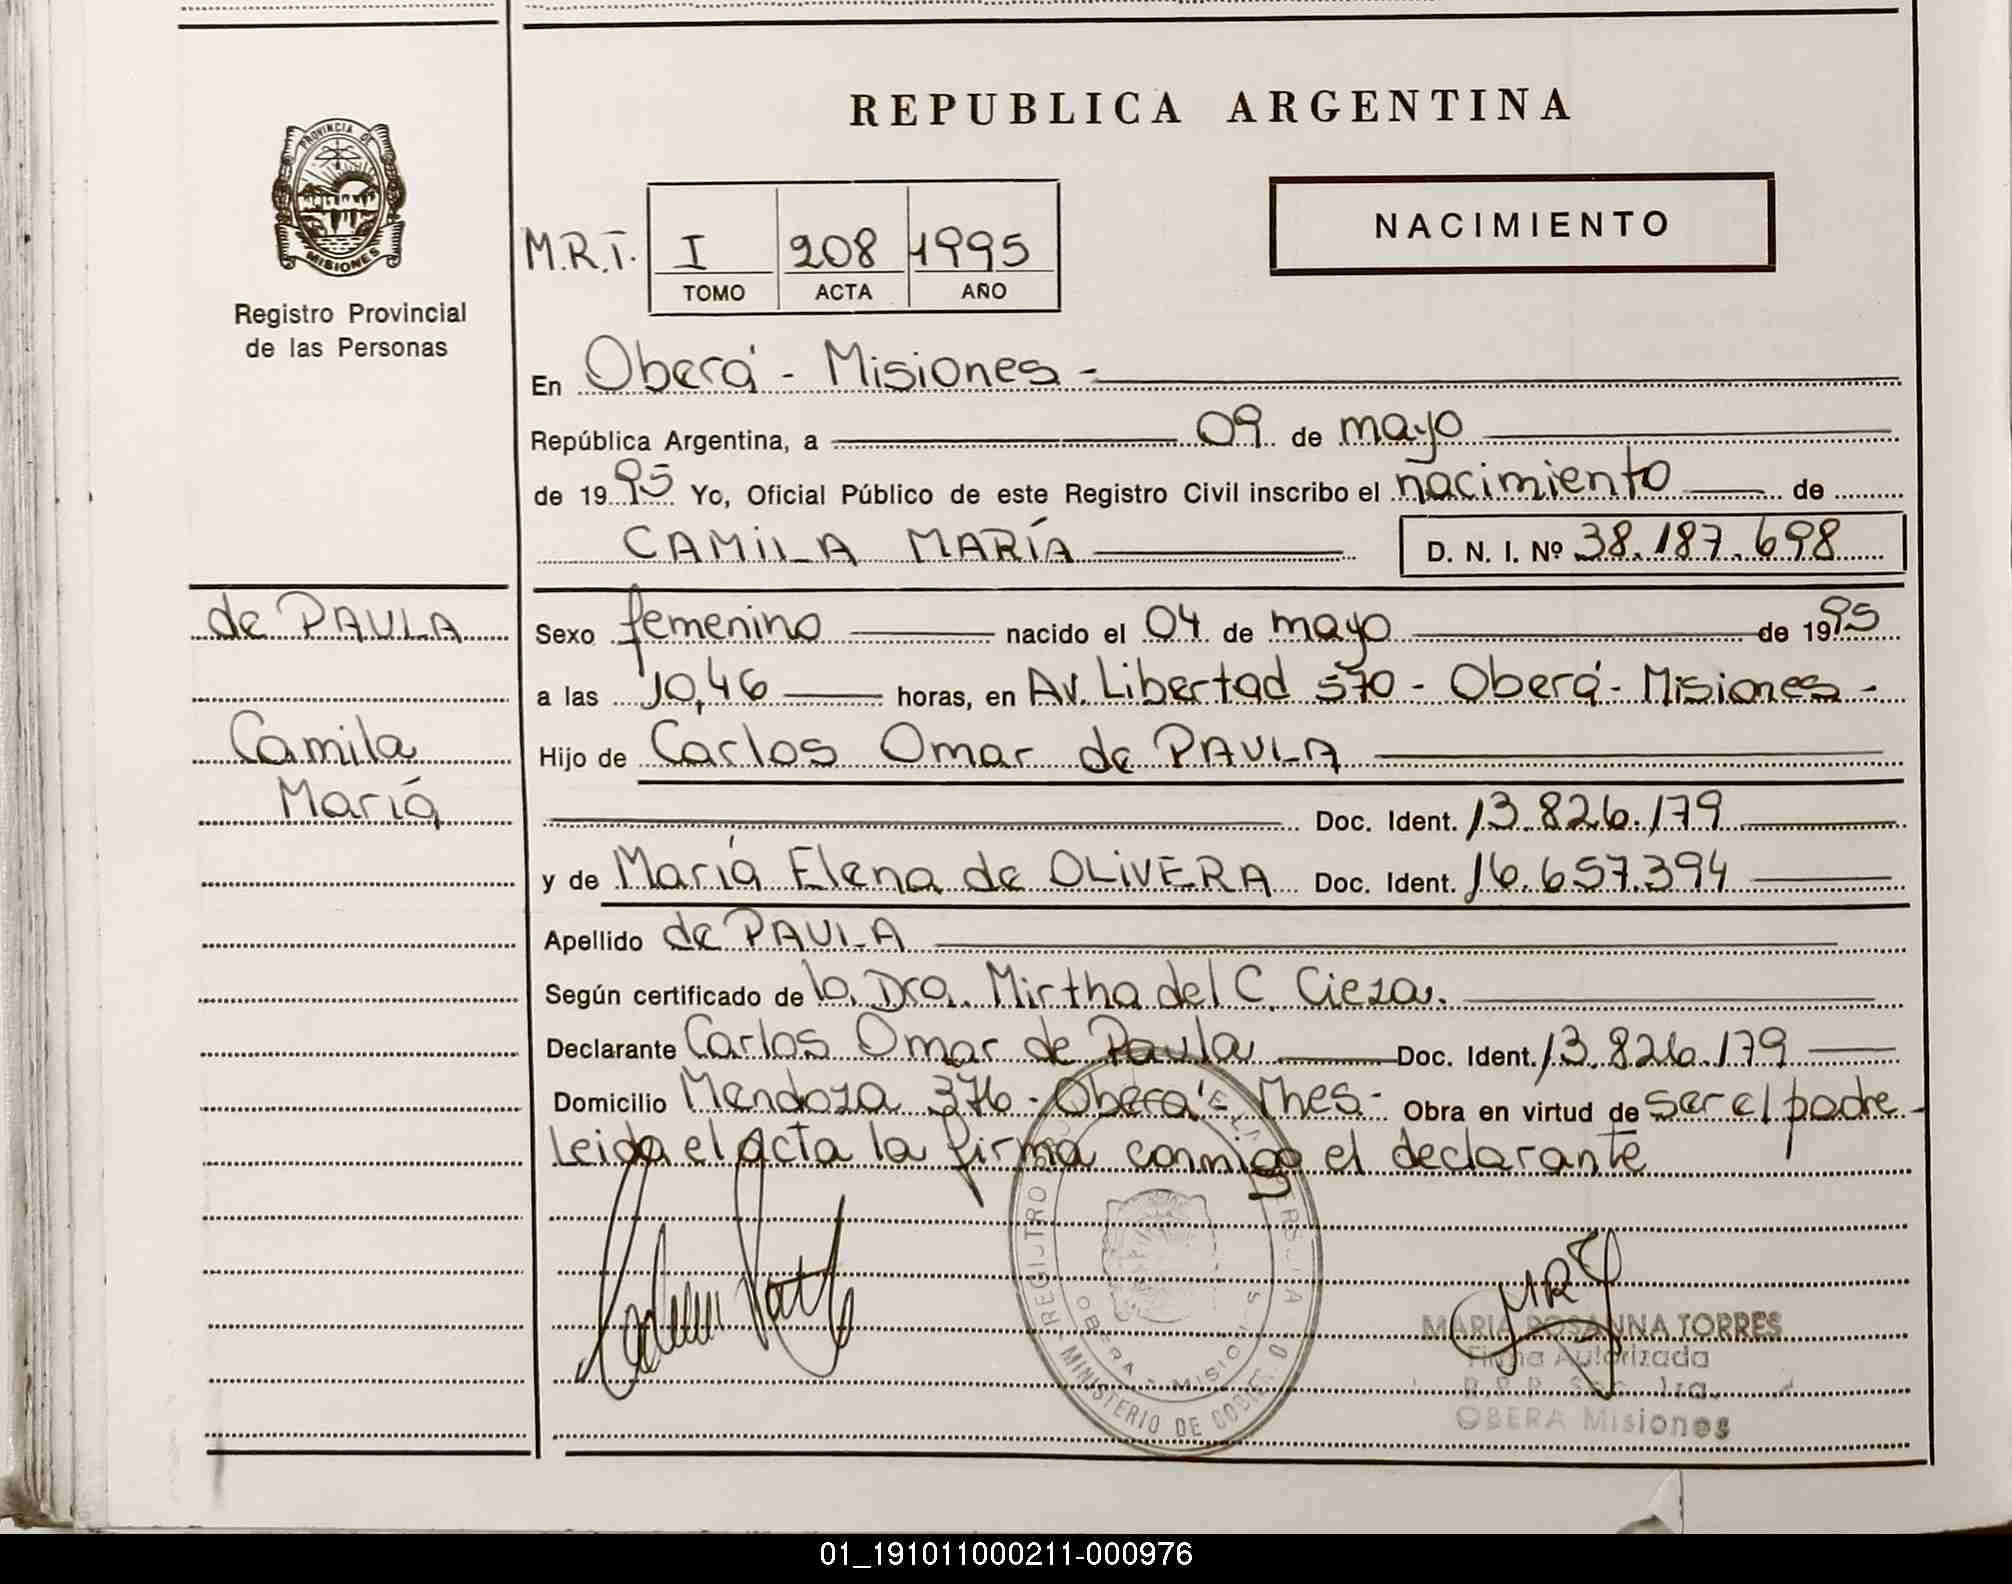 REPUBLICA ARGENTINA
PROVINCIA DE
MISIONES
Registro Provincial
de las Personas
NACIMIENTO
M.R.T. I 208 1995
TOMO ACTA AÑO
En Oberá - Misiones -
República Argentina, a 09 de mayo
de 1995 Yo, Oficial Público de este Registro Civil inscribo el nacimiento de
CAMILA MARÍA D. N. I. Nº 38.187.698
de PAULA
Camila
María
Sexo femenino nacido el 04 de mayo de 1995
a las 10,46 horas, en Av. Libertad 570 - Oberá - Misiones -
Hijo de Carlos Omar de PAULA
Doc. Ident. 13.826.179
y de María Elena de OLIVERA Doc. Ident. 16.657.394
Apellido de PAULA
Según certificado de la Dra. Mirtha del C. Cieza.
Declarante Carlos Omar de Paula Doc. Ident. 13.826.179
Domicilio Mendoza 376 - Oberá - Mnes - Obra en virtud de ser el padre -
Leida el acta la firma conmigo el declarante
REGISTRO
OBERA - MISIONES
MINISTERIO DE GOBIERNO
MARIA ROSANNA TORRES
Firma Autorizada
OBERA Misiones
01_191011000211-000976